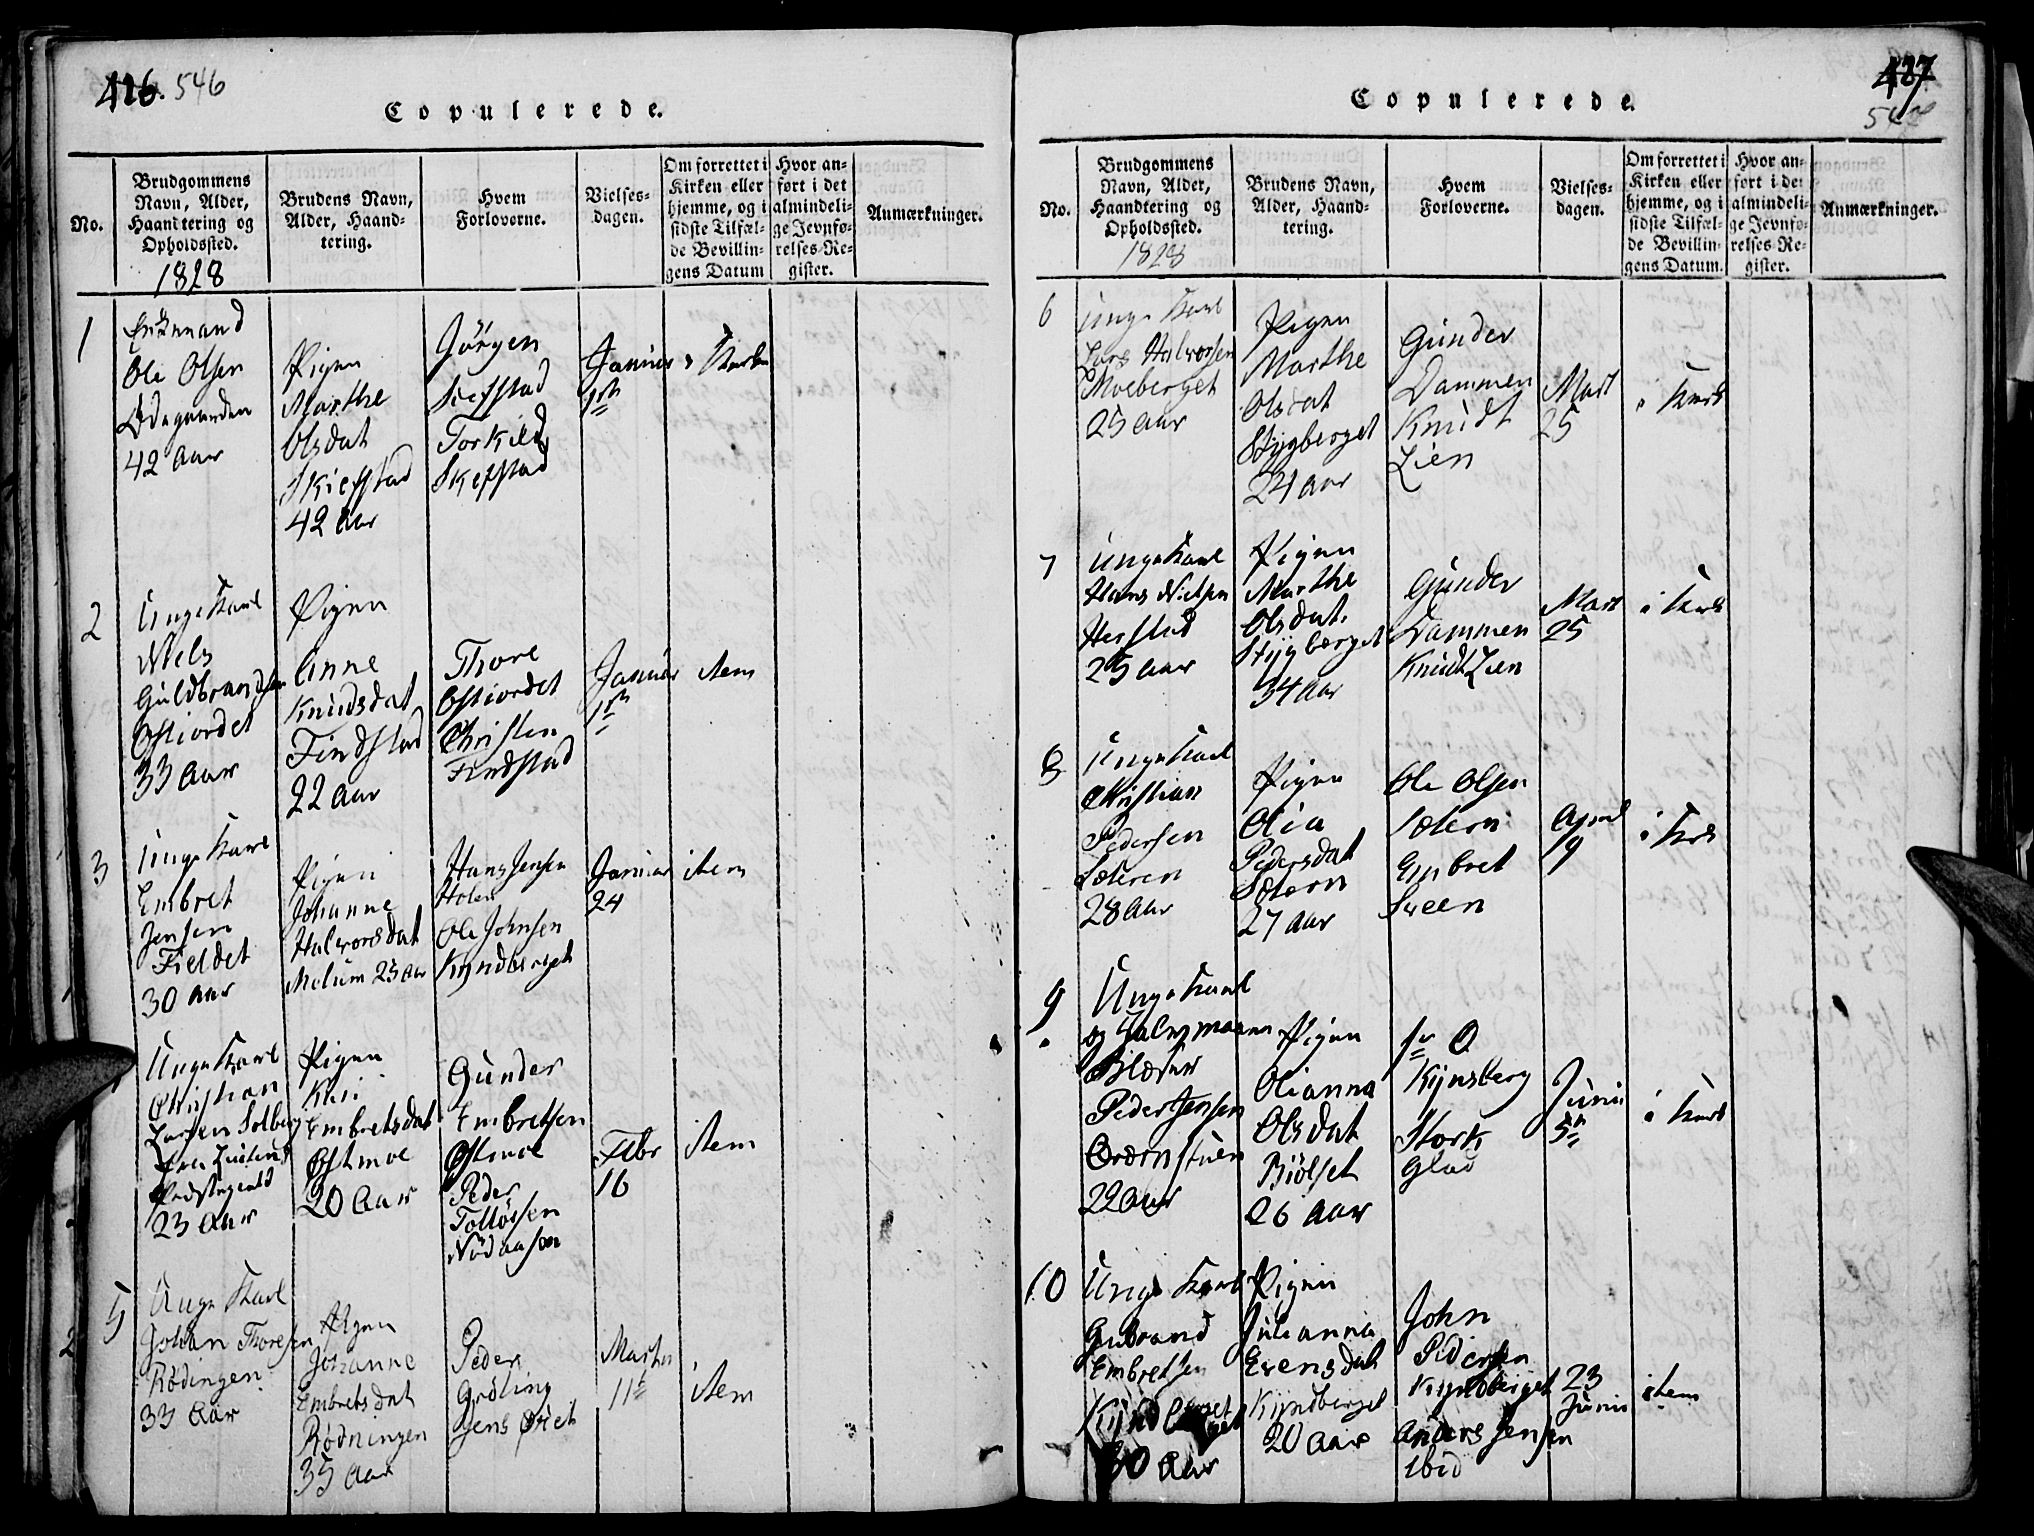 426. 546
Copulerede.
No.
Brudgommens
Navn, Alder,
Haandtering og
Opholdssted.
1828
Brudens Navn,
Alder, Haand-
tering.
Hvem
Forloverne.
Vielses-
dagen.
Om forrettet i
Kirken eller
hjemme, og i
sidste Tilfæl-
de Bevillin-
gens Datum
Hvor an-
ført i det
almindeli-
ge Jevnfø-
relses-Re-
gister.
Anmærkninger.
1
Enkemand
Ole Olsen
Ødegaarden
42 Aar
Pigen
Marthe
Olsdat
Skiefstad
42 Aar
Jörgen
Skefstad
Torkild
Skefstad
Januar
1ste
i Kirken
2
Unge Karl
Niels
Guldbrandsen
Ostiordet
33 Aar
Pigen
Anne
Knudsdat
Findstad
22 Aar
Thore
Ostiordet
Christen
Findstad
Januar
1ste
item
3
Unge Karl
Embret
Jensen
Fieldet
30 Aar
Pigen
Johanne
Halvorsdat
Melum 23 Aar
Hans Jensen
Holen
Ole Johnsen
Kyndberget
Januar
24
item
Unge Karl
Christian
Larsen Solberg
Præstegield
23 Aar
Pigen
Kari
Embretsdat
Østmoe
20 Aar
Gunder
Embretsen
Østmoe
Peder
Tollövsen
Nödaasen
Febr
16
item
5
Unge Karl
Johan Thoresen
Rödingen
33 Aar
Pigen
Johanne
Embretsdat
Rödningen
35 Aar
Peder
Grötting
Jens Øiet
Martii
11te
item
427
547
Copulerede.
No.
Brudgommens
Navn, Alder,
Haandtering og
Opholdssted.
1828
Brudens Navn,
Alder, Haand-
tering.
Hvem
Forloverne.
Vielses-
dagen.
Om forrettet i
Kirken eller
hjemme, og i
sidste Tilfæl-
de Bevillin-
gens Datum.
Hvor an-
ført i det
almindeli-
ge Jevnfø-
relses-Re-
gister.
Anmærkninger.
6
Unge Karl
Lars Halvorsen
Moeberget
25 Aar
Pigen
Marthe
Olsdat
Stygberget
24 Aar
Gunder
Dammen
Knudt
Lien
Mart
25
i Kirk
7
Unge Karl
Hans Nielsen
Herstad
25 Aar
Pigen
Marthe
Olsdat.
Stygberget
34 Aar
Gunder
Dammen
Knudt Lien
Mart
25
i Kirk
8
Unge Karl
Christian
Pedersen
Sæteren
28 Aar
Pigen
Olia
Pedersdat
Sætern
27 Aar
Ole Olsen
Sætern
Embret
Sveen
April
19
i Kirk
9
Unge Karl
Peder Jensen
22 Aar
Pigen
Olianna
Olsdat
Biölset
26 Aar
Kynsberg
Stork
Glad
Junii
5te
i Kirk
10
Unge Karl
Gubrand
Embretsen
Kyndberget
30 Aar
Pigen
Julianna
Evensdat
Kyndberget
20 Aar
John
Pedersen
Kyndberget
Anders Jensen
ibid
23
Junii
item